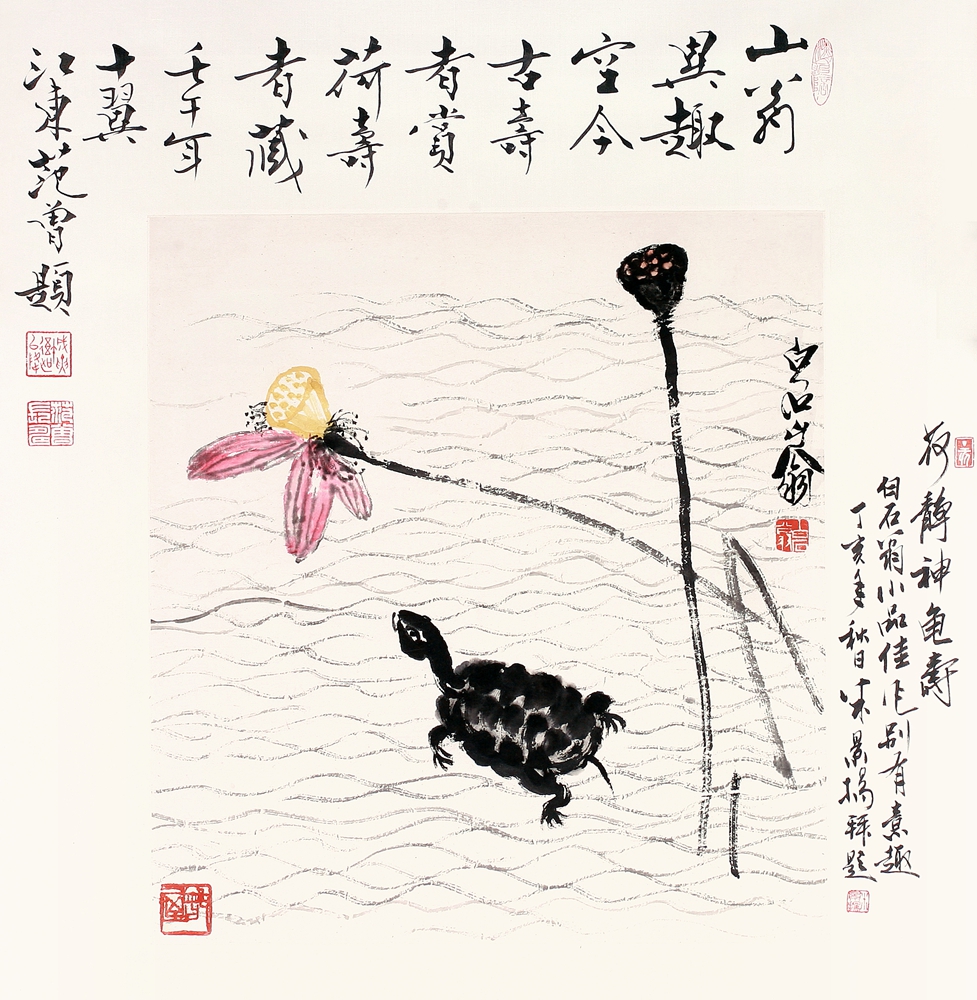 山翁
異趣
空今
古壽
者賞
荷壽
者藏
壬午年
十翼
江東范曾題
白石山翁
荷靜神龜壽
白石翁小品佳作别有意趣
丁亥年秋日 米景揚拜題